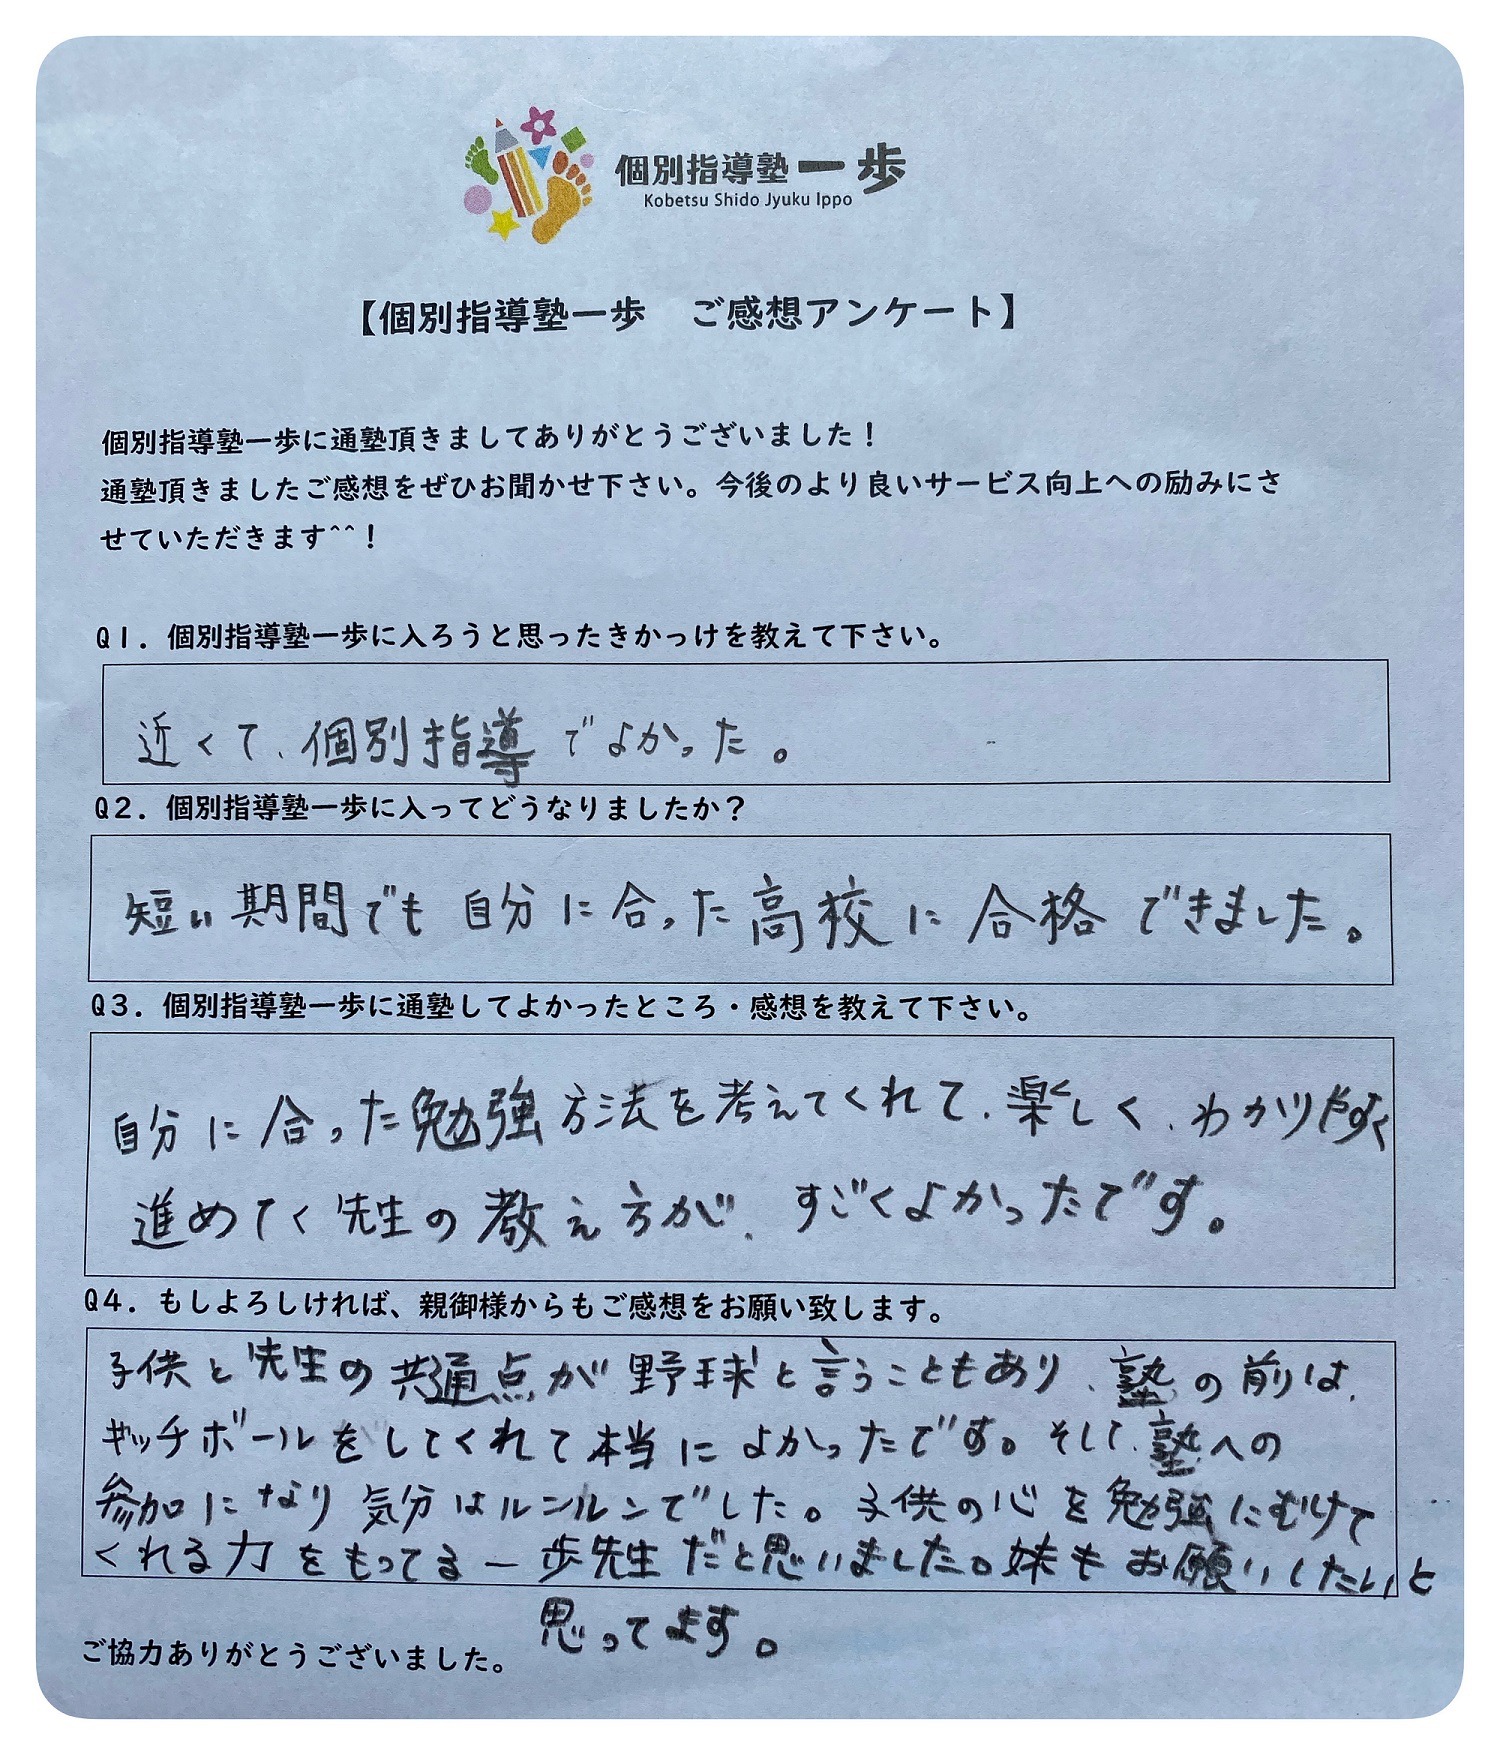 個別指導塾一歩
Kobetsu Shido Jyuku Ippo
【個別指導塾一歩　ご感想アンケート】
個別指導塾一歩に通塾頂きましてありがとうございました！
通塾頂きましたご感想をぜひお聞かせ下さい。今後のより良いサービス向上への励みにさ
せていただきます^^！
Q1. 個別指導塾一歩に入ろうと思ったきかっけを教えて下さい。
近くて、個別指導でよかった。
Q2. 個別指導塾一歩に入ってどうなりましたか？
短い期間でも自分に合った高校に合格できました。
Q3. 個別指導塾一歩に通塾してよかったところ・感想を教えて下さい。
自分に合った勉強方法を考えてくれて、楽しく、わかりやすく
進めてく先生の教え方が、すごくよかったです。
Q4. もしよろしければ、親御様からもご感想をお願い致します。
子供と先生の共通点が野球と言うこともあり、塾の前は、
キッチボールをしてくれて本当によかったです。そして、塾への
参加になり気分はルンルンでした。子供の心を勉強にむけて
くれる力をもってる一歩先生だと思いました。妹もお願いしたいと
思ってます。
ご協力ありがとうございました。